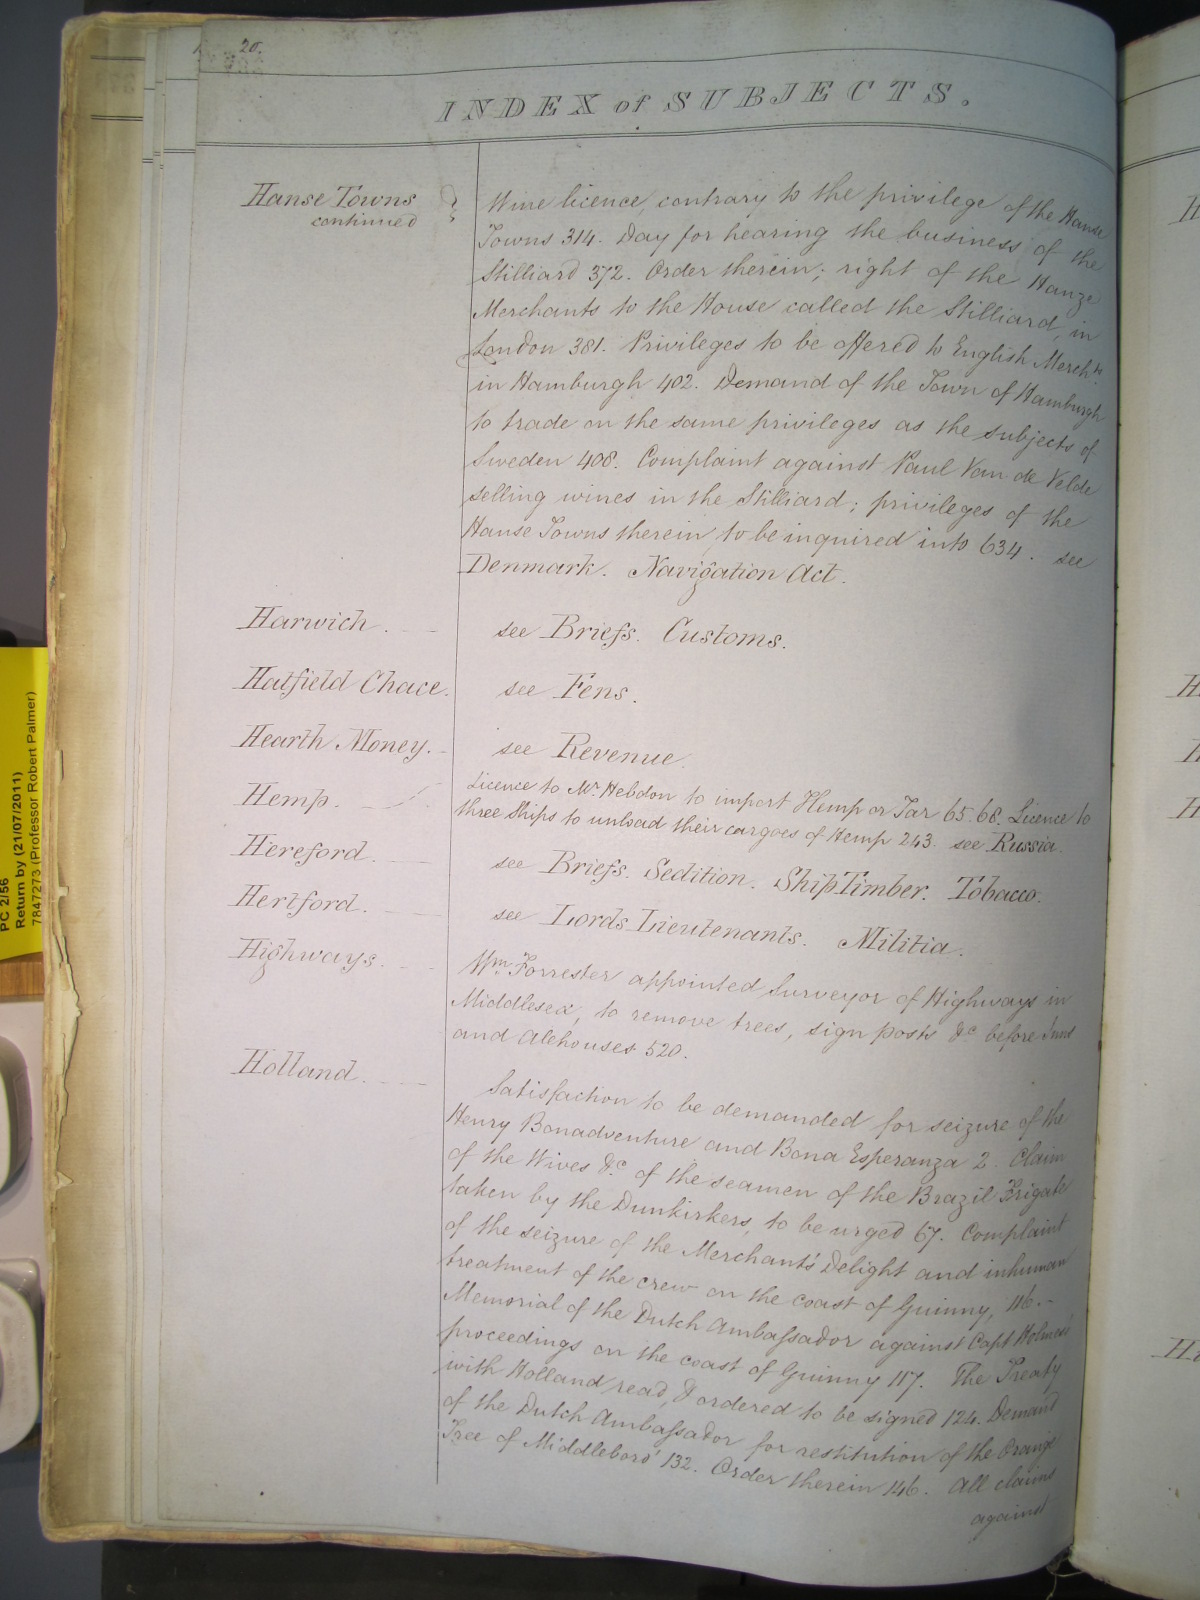 20.
INDEX of SUBJECTS.
Hanse Towns
continued
Wine licence, contrary to the privilege of the Hanse
Towns 314. Day for hearing the business of the
Stilliard 372. Order therein; right of the Hanze
Merchants to the House called the Stilliard, in
London 381. Privileges to be offered to English Merchts.
in Hamburgh 402. Demand of the Town of Hamburgh
to trade on the same privileges as the subjects of
Sweden 408. Complaint against Paul Van de Velde
selling wines in the Stilliard; privileges of the
Hanse Towns therein, to be inquired into 634. see
Denmark. Navigation Act.
Harwich. see Briefs. Customs.
Hatfield Chace. see Fens.
Hearth Money. see Revenue.
Hemp. Licence to Mr. Hebdon to import Hemp or Tar 65. 68. Licence to
three Ships to unload their cargoes of Hemp 243. see Russia.
Hereford. see Briefs. Sedition. Ship Timber. Tobacco.
Hertford. see Lords Lieutenants. Militia.
Highways. Wm. Forrester appointed Surveyor of Highways in
Middlesex, to remove trees, sign posts &c before Inns
and Alehouses 520.
Holland. Satisfaction to be demanded for seizure of the
Henry Bonadventure and Bona Esperanza 2. Claim
of the Wives &c. of the seamen of the Brazil Frigate
taken by the Dunkirkers, to be urged 67. Complaint
of the seizure of the Merchant's Delight and inhuman
treatment of the crew on the coast of Guinny, 116.-
Memorial of the Dutch Ambassador against Capt Holmes'
proceedings on the coast of Guinny 117. The Treaty
with Holland read, & ordered to be signed 124. Demand
of the Dutch Ambassador for restitution of the Orange
Tree of Middleboro' 132. Order therein 146. All claims
against
PC 2/56
Return by (21/07/2011)
7847273 (Professor Robert Palmer)